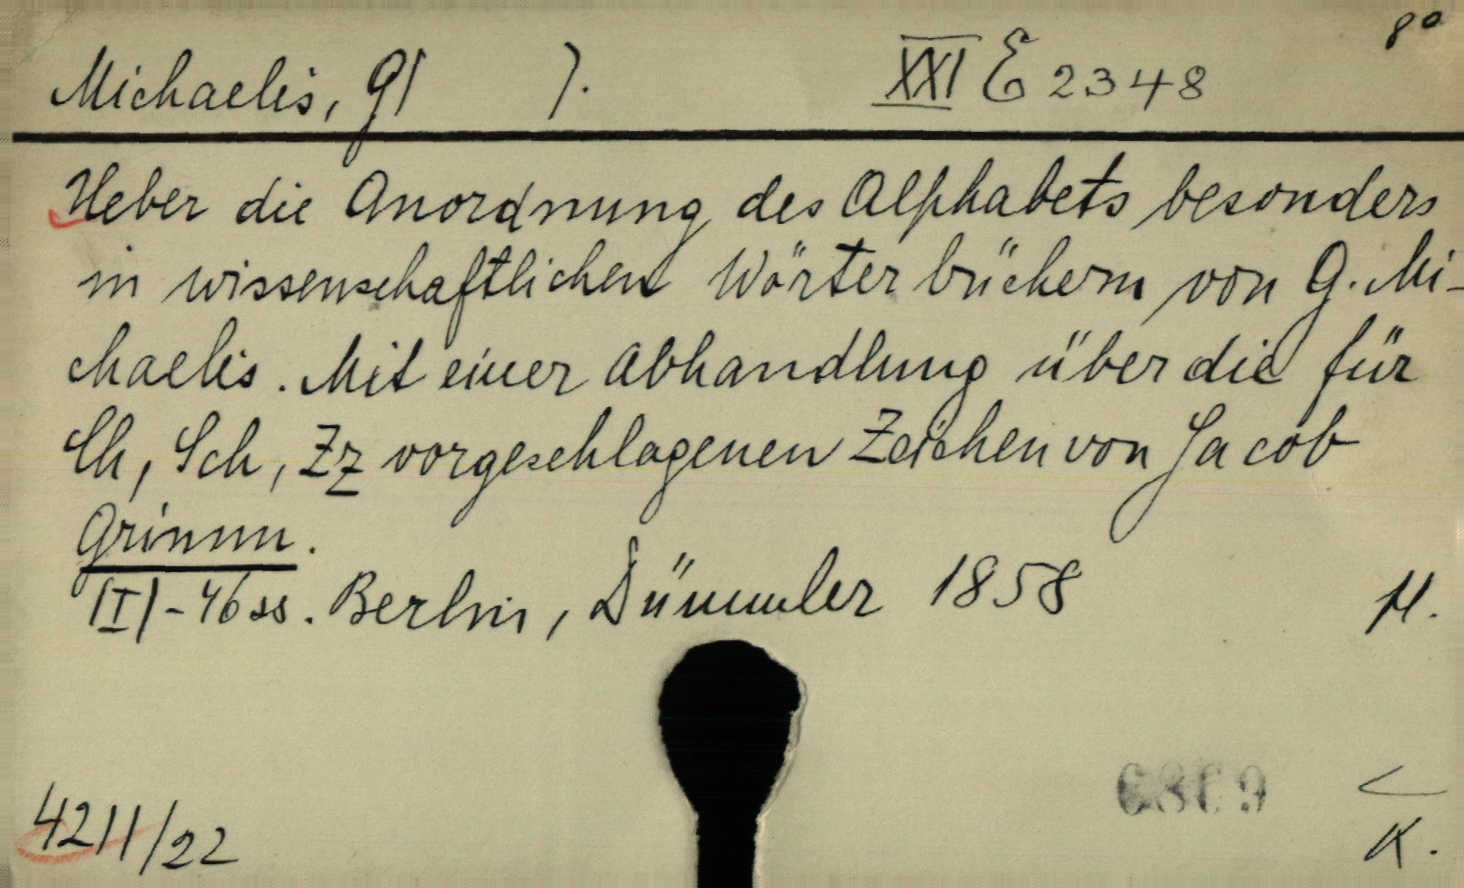 8°
Michaelis, G( ). XXI E 2348
Ueber die Anordnung des Alphabets besonders
in wissenschaftlichen Wörterbüchern von G. Mi-
chaelis. Mit einer Abhandlung über die für
Ch, Sch, Zz vorgeschlagenen Zeichen von Jacob
Grimm.
(I)-46 ss. Berlin, Dümmler 1858 M.
6869
4211/22 K.